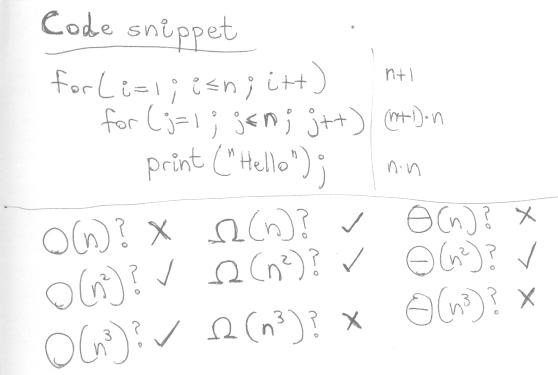 Code snippet
for(i=1; i≤n; i++) n+1
for(j=1; j≤n; j++) (n+1)·n
print("Hello"); n·n
O(n)? ✗ Ω(n)? ✓ Θ(n)? ✗
O(n²)? ✓ Ω(n²)? ✓ Θ(n²)? ✓
O(n³)? ✓ Ω(n³)? ✗ Θ(n³)? ✗